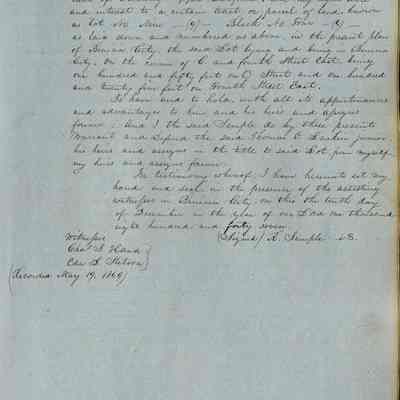 and interest to a certain tract or parcel of land, known
as Lot No Nine (9) Block No Four (4)
as laid down and numbered as above, in the present plan
of Benicia City, the said Lot lying and being in Benicia
City. On the corner of C and fourth Street East, being
one hundred and fifty feet on C Street and one hundred
and twenty five feet on Fourth Street East.
To have and to hold, with all its appurtenances
and advantages to him and his heirs and assigns
forever. And I the said Semple do by these presents
Warrant and Defend the said Thomas O Larkin junior
his heirs and assigns in the title to said Lot from myself
my heirs and assigns forever.
In testimony whereof, I have hereunto set my
hand and seal in the presence of the attesting
witnesses in Benicia City, on this the tenth day
of December in the year of our Lord one thousand
eight hundred and forty seven.
Witnesses (Signed) R. Semple
Chas. S. Hand
Recorded May 19, 1866